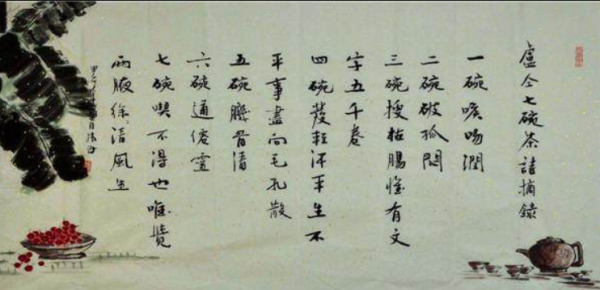 盧仝七碗茶詩摘錄
一碗喉吻潤
二碗破孤悶
三碗搜枯腸惟有文
字五千卷
四碗發輕汗平生不
平事盡向毛孔散
五碗骨清
六碗通僊靈
七碗喫不得也唯覺
兩腋徐〻清風生